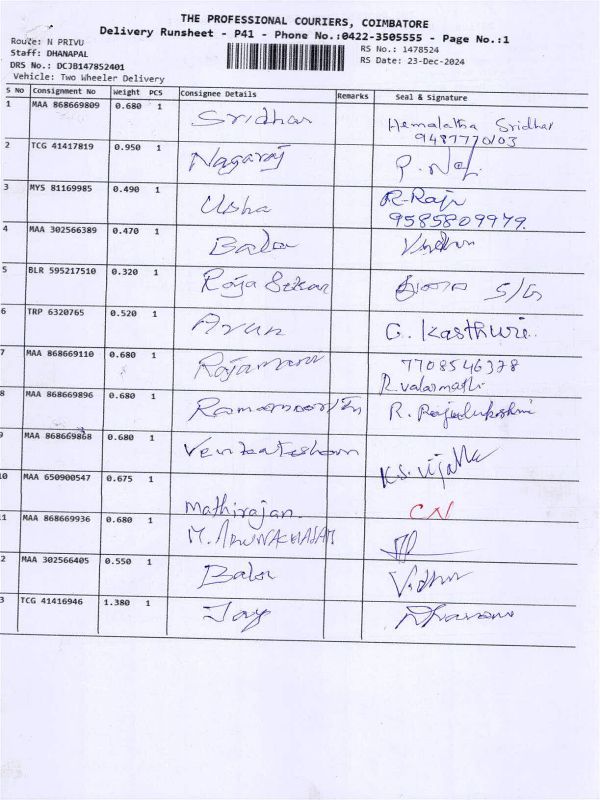 THE PROFESSIONAL COURIERS, COIMBATORE
Delivery Runsheet - P41 - Phone No.:0422-3505555 - Page No.:1
Route: N PRIVU
Staff: DHANAPAL
DRS No.: DCJB147852401
Vehicle: Two Wheeler Delivery
RS No.: 1478524
RS Date: 23-Dec-2024
S No Consignment No Weight PCS Consignee Details Remarks Seal & Signature
1 MAA 868669809 0.680 1 Sridhar Hemalatha Sridhar
9487770103
2 TCG 41417819 0.950 1 Nagaraj
3 MYS 81169985 0.490 1 Usha R-Raji
9585809979.
4 MAA 302566389 0.470 1 Bala
5 BLR 595217510 0.320 1 Roja Sekar S/G
6 TRP 6320765 0.520 1 Arun G. Kasthuri.
7 MAA 868669110 0.680 1 7708546378
R.valarmathi
8 MAA 868669896 0.680 1 R. Rajalakshmi
9 MAA 868669868 0.680 1 Venkateshwaran K.S. Vijaya
10 MAA 650900547 0.675 1 Mathirajan. CN
11 MAA 868669936 0.680 1 M. ARUNACHALAM
2 MAA 302566405 0.550 1 Bala
3 TCG 41416946 1.380 1 Jay